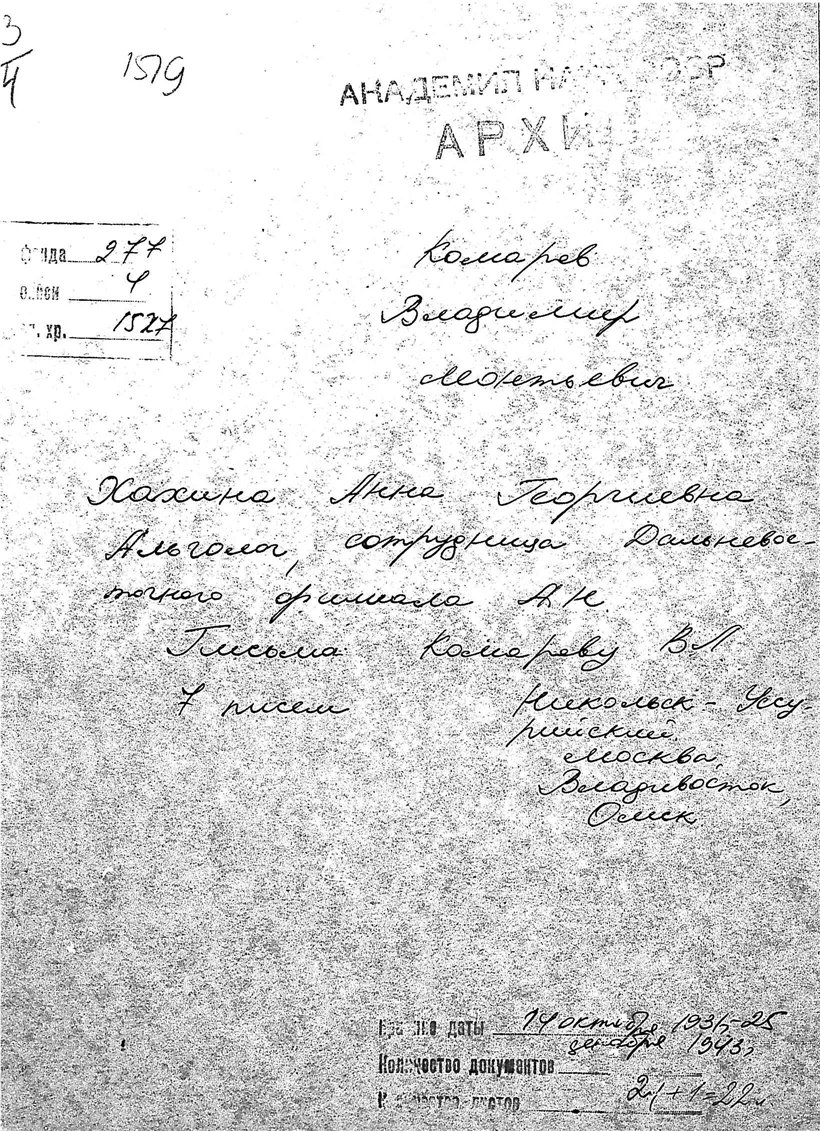 3
4
1519
АКАДЕМИЯ НАУК СССР
АРХИВ
фонда 277
описи 4
ед. хр. 1527
Комаров
Владимир
Леонтьевич
Хахина Анна Георгиевна
Альголог, сотрудница Дальневос-
точного филиала АН
Письма Комарову ВЛ
7 писем
Никольск-Уссу-
рийский,
Москва,
Владивосток,
Омск
Крайние даты 14 октября 1931-25
декабря 1943г
Количество документов
Количество листов 21+1=22л